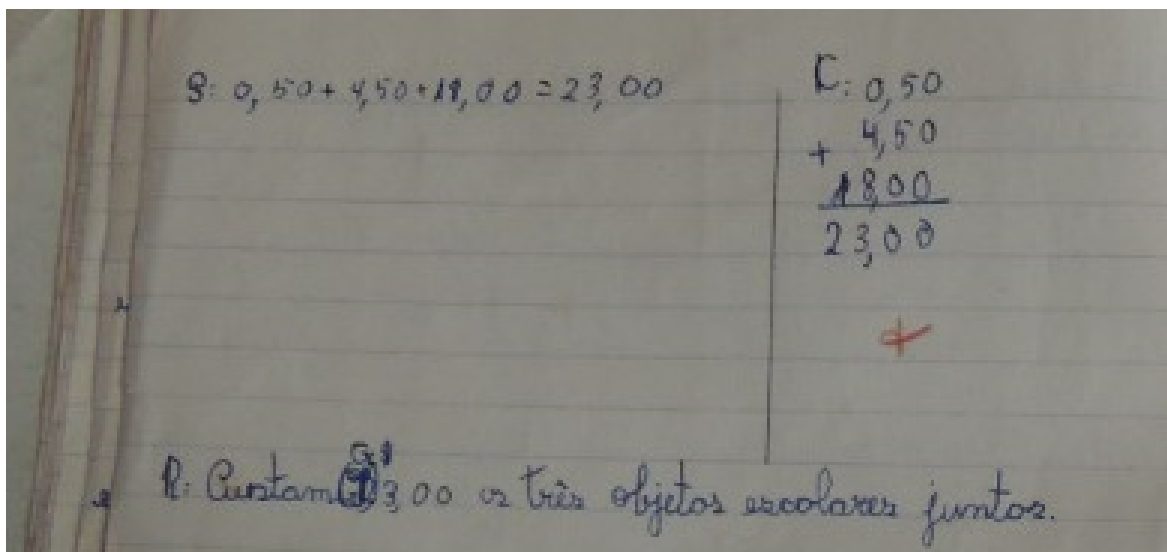 S: 0,50 + 4,50 + 18,00 = 23,00
C: 0,50
+ 4,50
18,00
23,00
R: Custam 3,00 os três objetos escolares juntos.